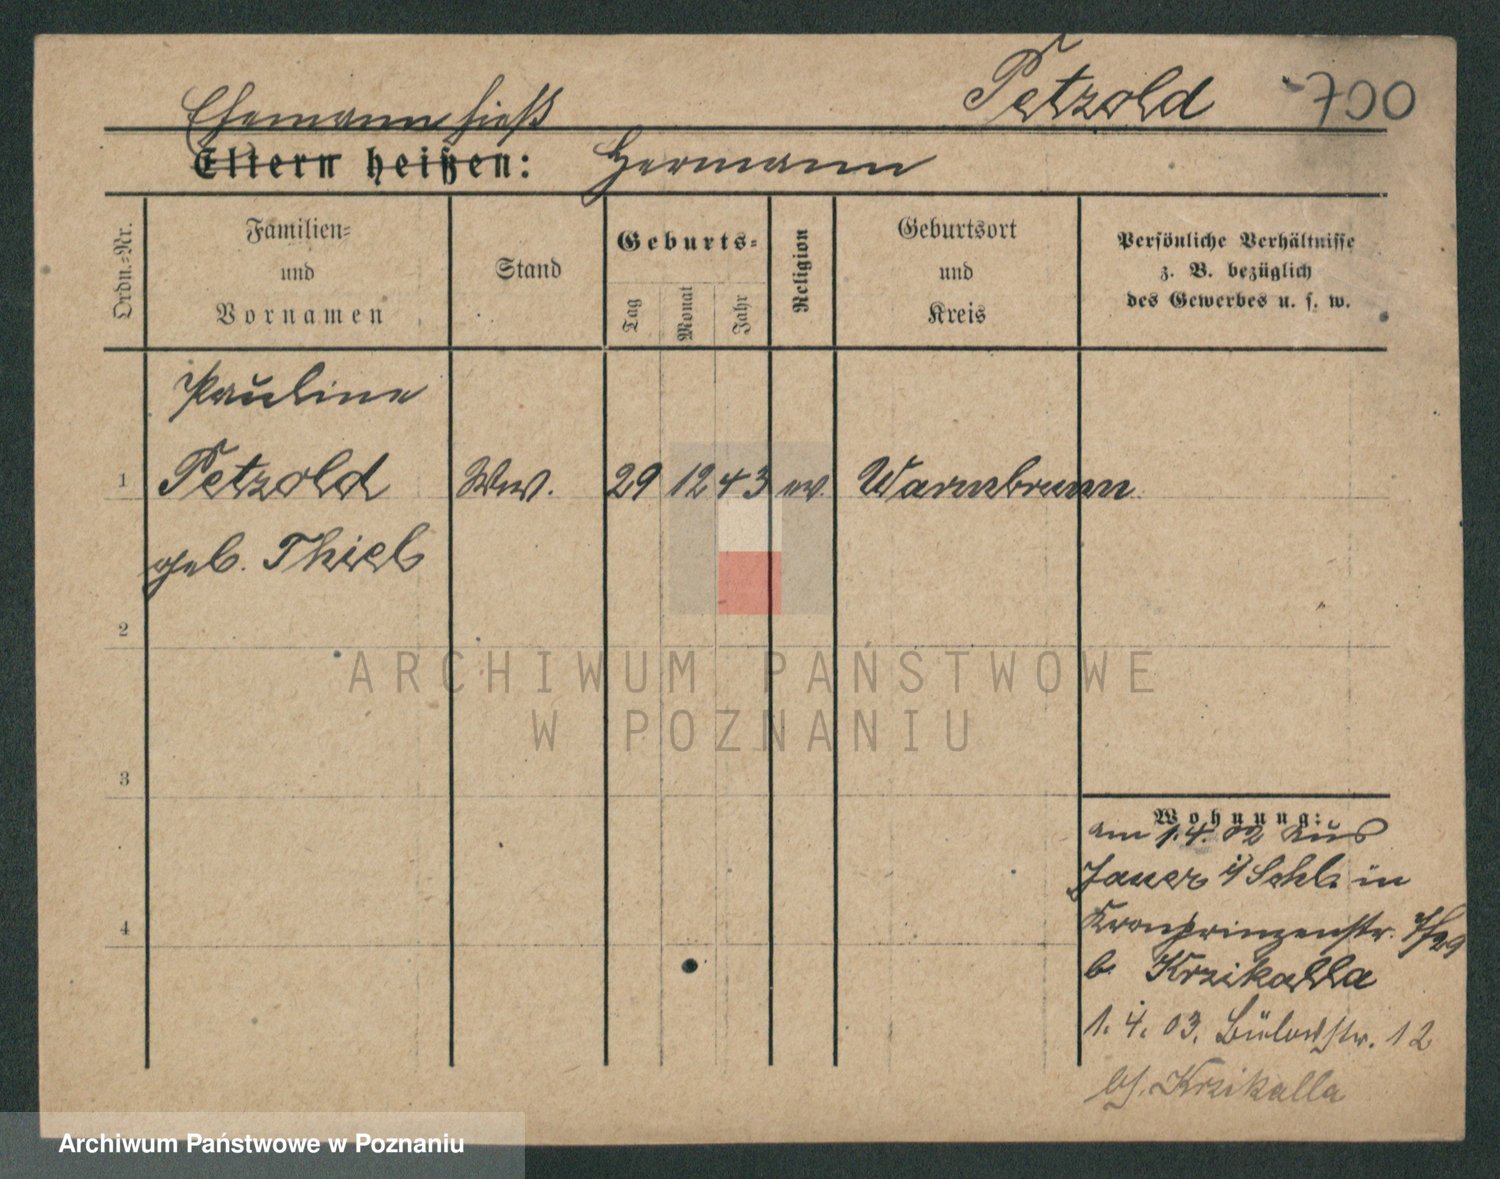 Petzold 700
Ehemann hieß
Eltern heißen: Hermann
Ordn.-Nr.
Familien-
und
Vornamen
Stand
Geburts-
Tag
Monat
Jahr
Religion
Geburtsort
und
Kreis
Persönliche Verhältnisse
z. B. bezüglich
des Gewerbes u. s. w.
Pauline
1 Petzold Ww. 29 12 43 ev. Warmbrunn
geb. Thiel
2
3
4
Wohnung:
am 1.4.02 aus
Jauer i/Schl. in
Kronprinzenstr.
b. Krzikalla
1. 4. 03. Bülowstr. 12
b/. Krzikalla
ARCHIWUM PAŃSTWOWE
W POZNANIU
Archiwum Państwowe w Poznaniu